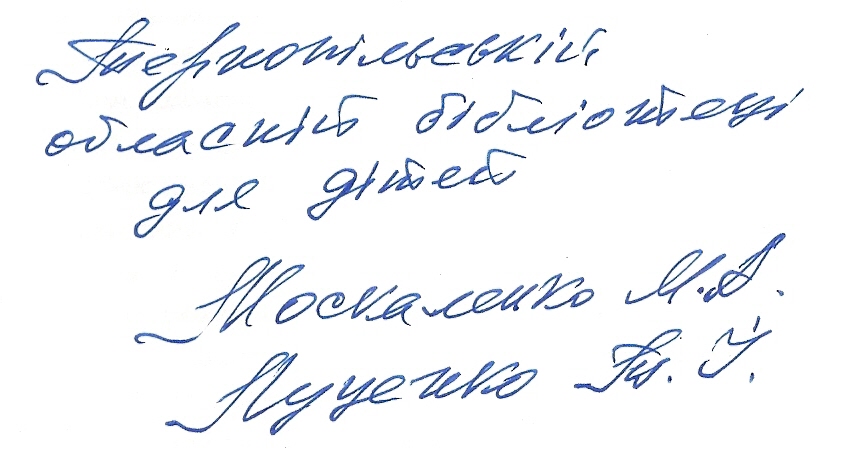 Тернопільській
обласній бібліотеці
для дітей
Москаленко М. А.
Луценко Т. І.